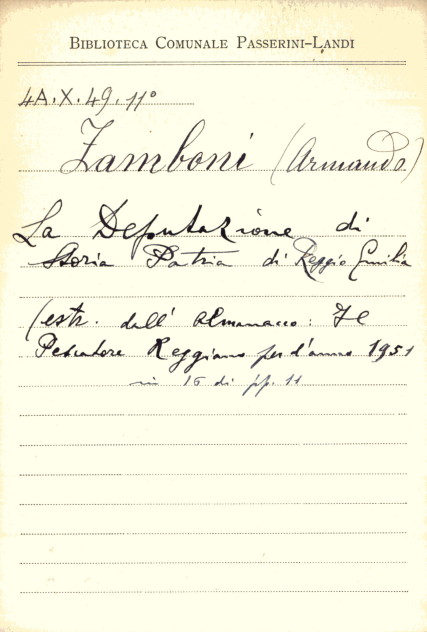 BIBLIOTECA COMUNALE PASSERINI-LANDI
4A.X.49.11°
Zamboni (Armando)
La Deputazione di
Storia Patria di Reggio Emilia
(estr. dall' Almanacco: Il
Pescatore Reggiano per l'anno 1951
in 16 di pp. 11